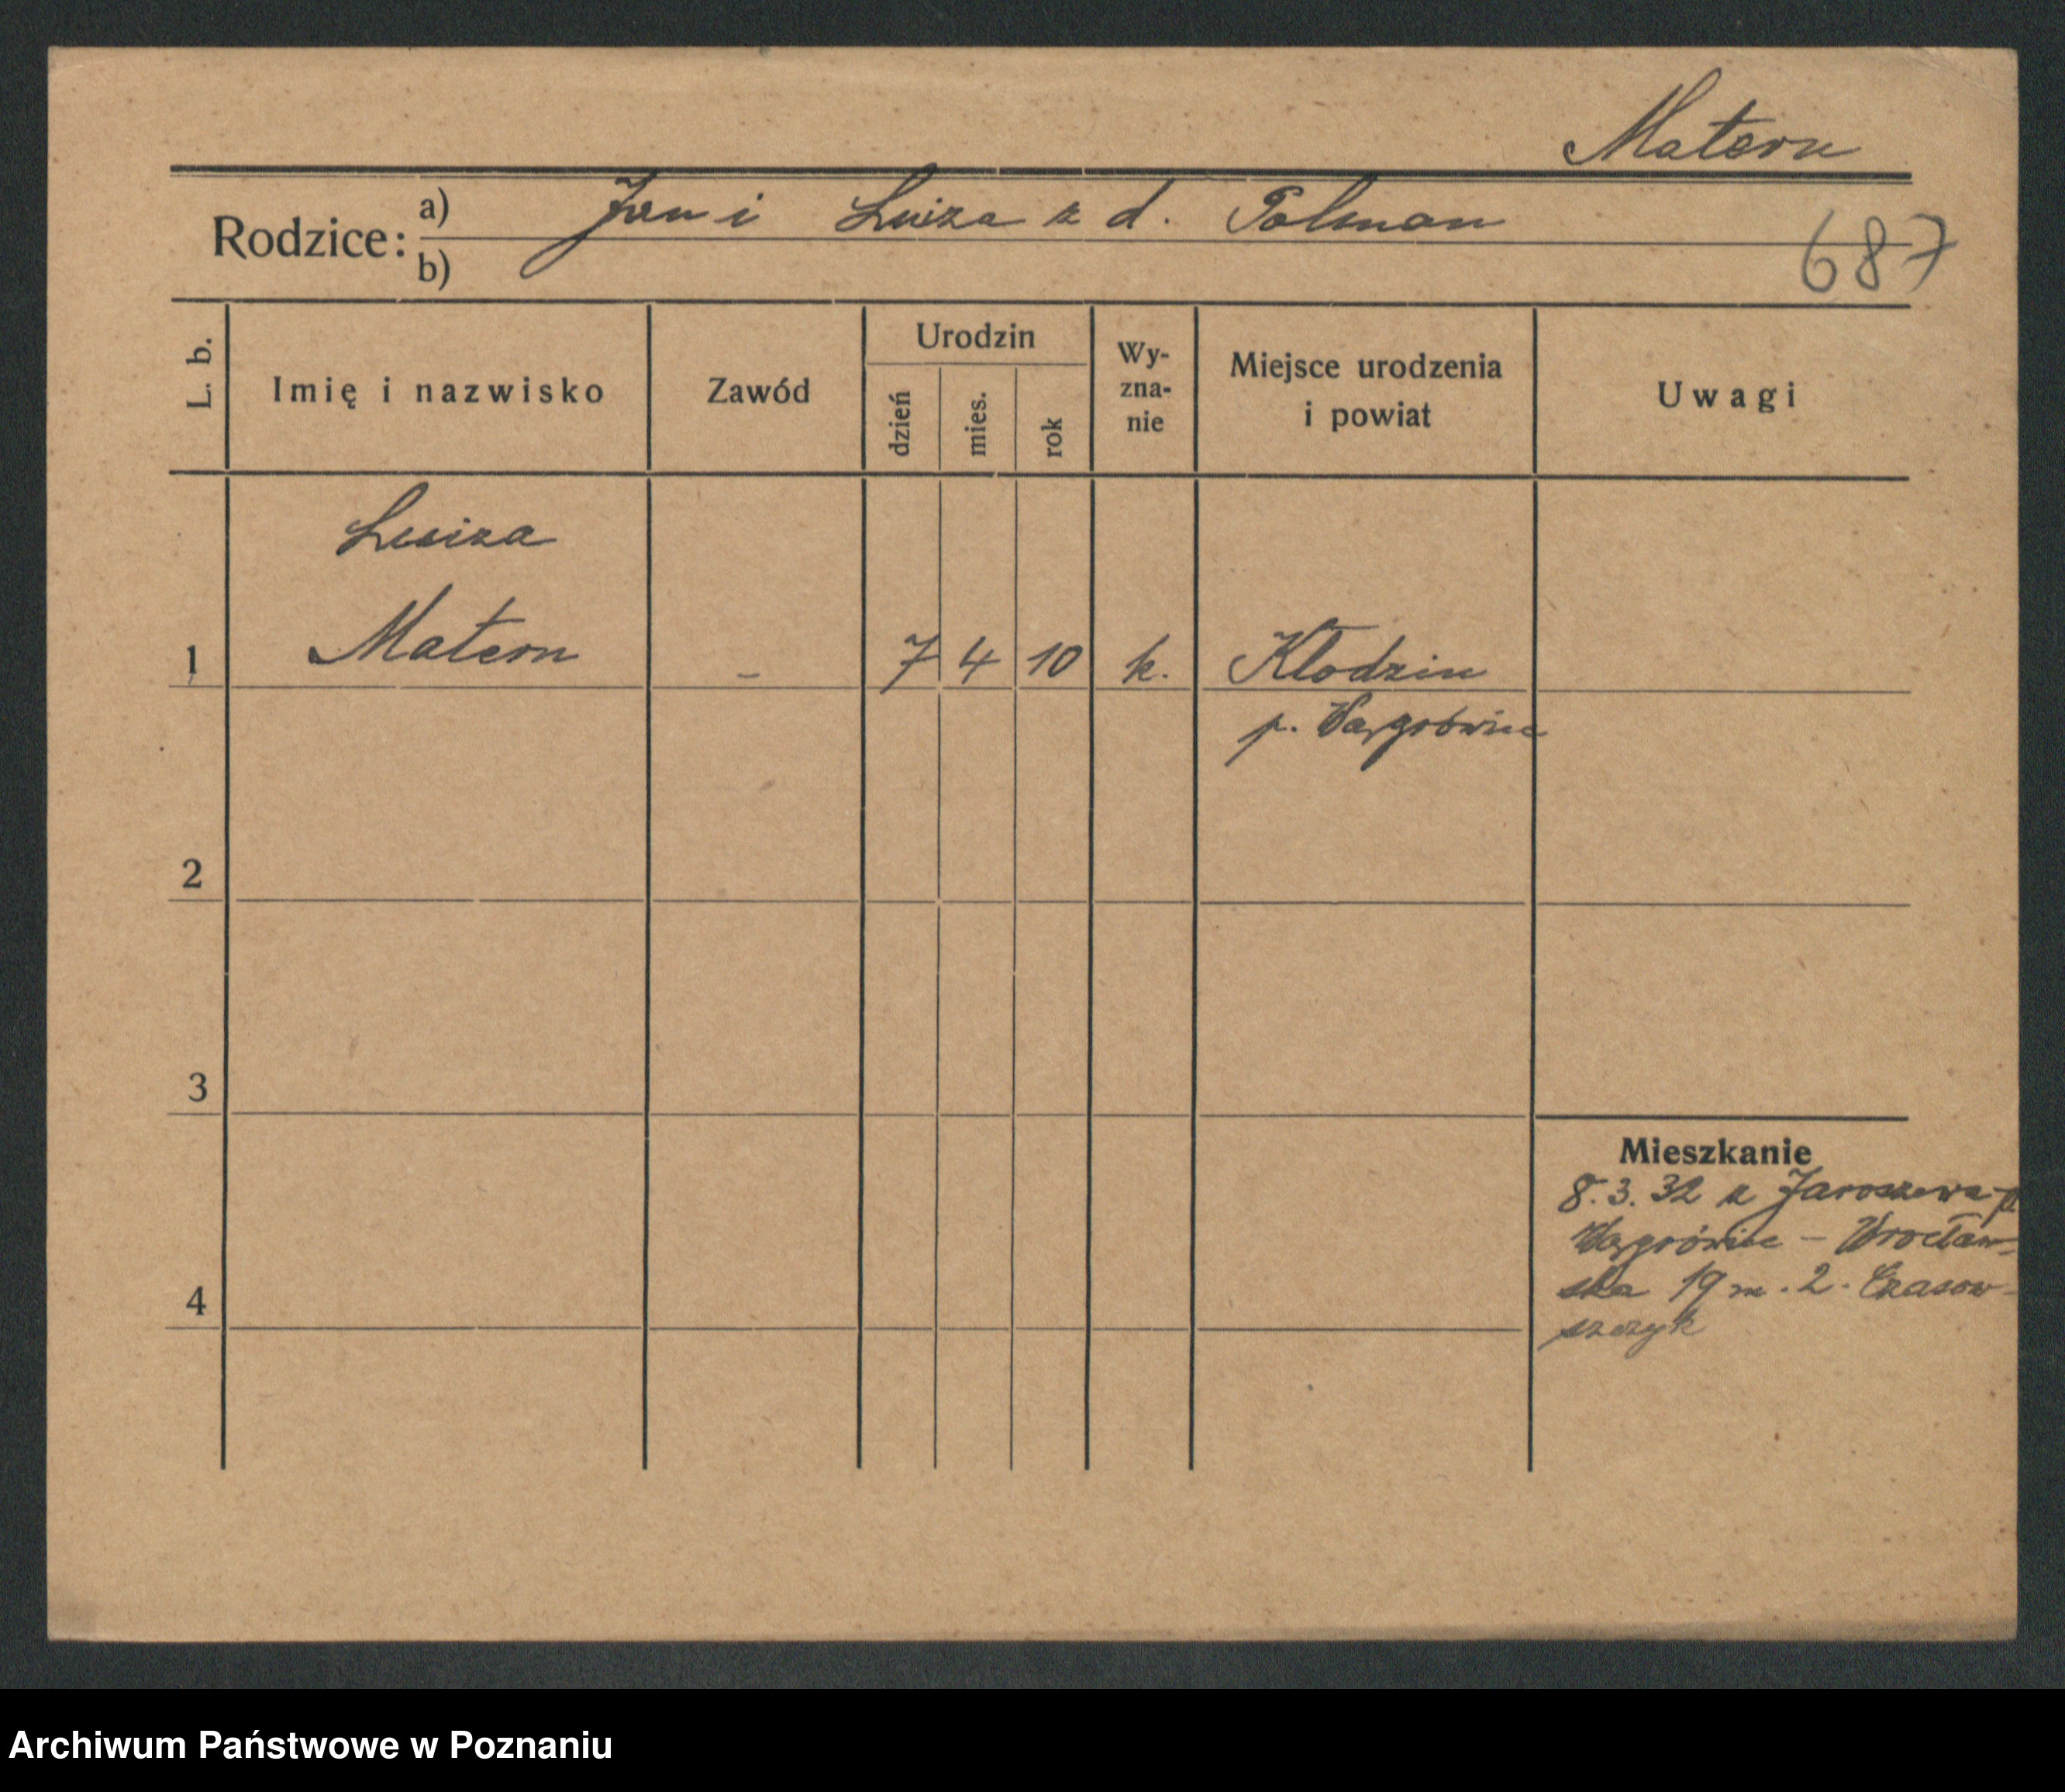 Matern
Rodzice: a) Jan i Luiza z d. Polman
b)
687
L. b.
Imię i nazwisko
Zawód
Urodzin
dzień
mies.
rok
Wy-
zna-
nie
Miejsce urodzenia
i powiat
Uwagi
Luiza
1 Matern - 7 4 10 k. Kłodzin
p. Wągrówiec
2
3
Mieszkanie
8.3.32 z Jaroszewa p.
Wągrówiec - Wrocław-
4 ska 19 m. 2.
Archiwum Państwowe w Poznaniu